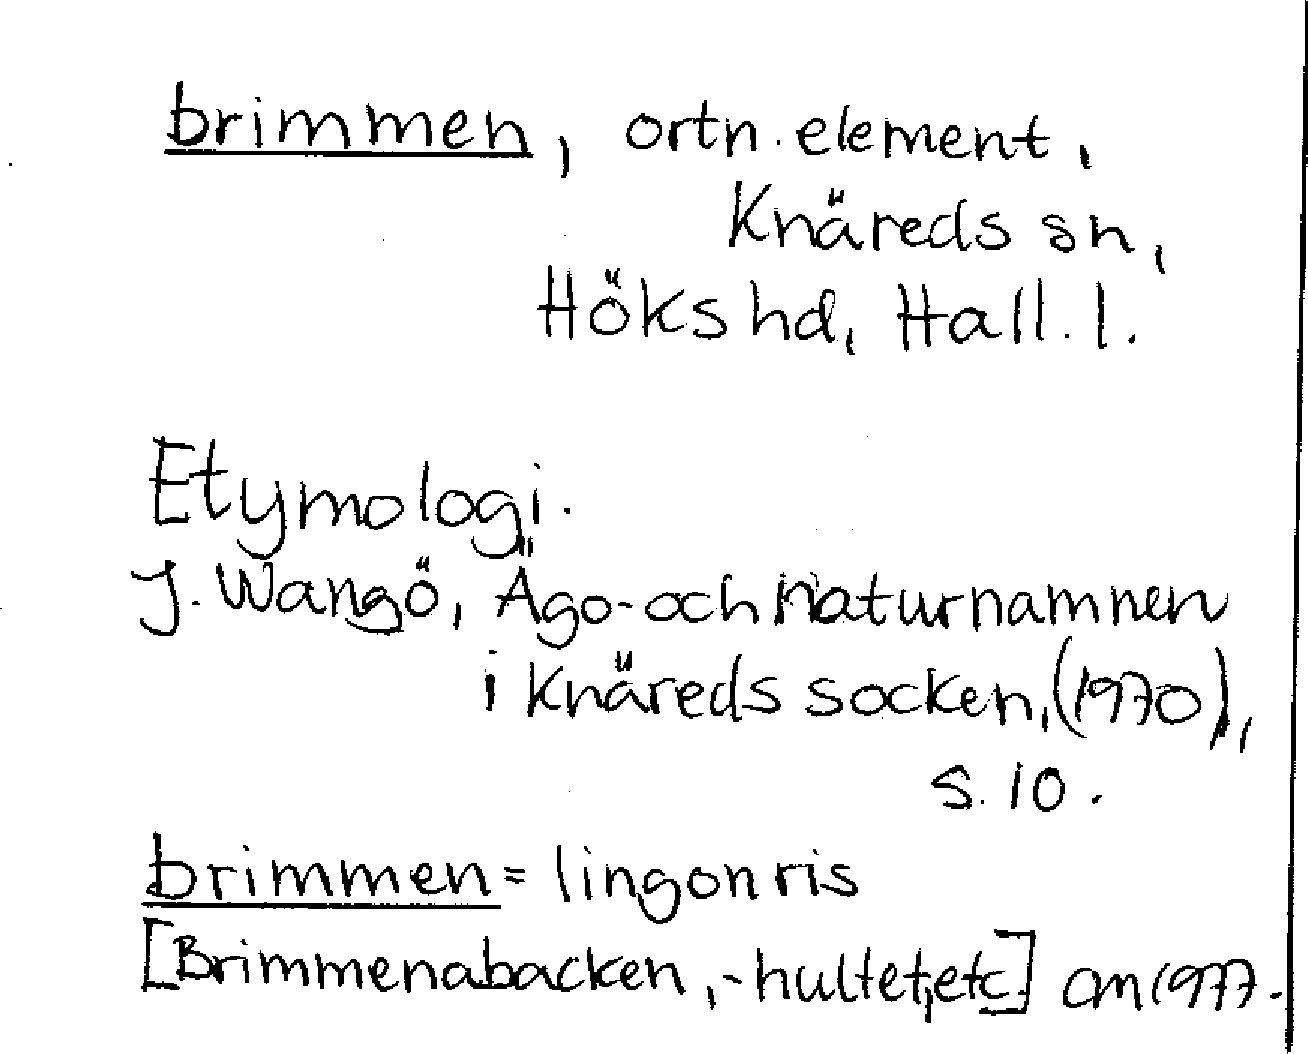 brimmen, ortn. element,
Knäreds sn,
Höks hd, Hall. l.
Etymologi.
J. Wangö, Ägo- och naturnamnen
i Knäreds socken, (1970),
s. 10.
brimmen = lingonris
[Brimmenabacken, -hultet, etc] CM 1977.